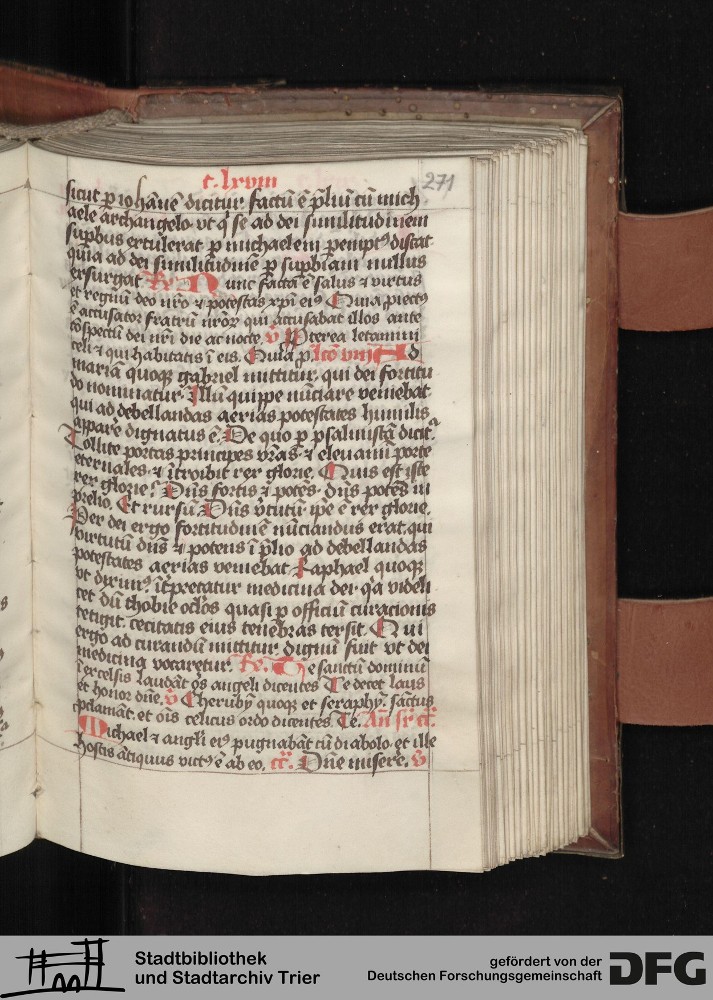 c. lxviii
271
sicut ꝑ iohāne dicitur. factū ē p̄liū cū mich
aele archangelo. vt q̇ se ad dei similitudinem
supbus extulerat p michaelem pempt⁹ discat
quia ad dei similitudinē p supbiam nullus
exsurgat. Rꝫ. Nunc facta ē salus ⁊ virtus
et regnū deo nr̄o ⁊ potestas xp̄i ei⁹ Quia piect⁹
ē accusator fratrū nr̄oꝝ qui accusabat illos ante
cōspectū dei nr̄i die ac nocte. v̄ Pterea letamini
celi ⁊ qui habitatis ī eis. Quia p. lcō viij Ad
maria quoqꝫ gabriel mittitur. qui dei fortitu
do nominatur. Illū quippe nūciare veniebat
qui ad debellandas aerias potestates humilis
apparē dignatus ē. De quo p psalmistā dicit᷑
Tollite portas principes vr̄as. ⁊ eleuamī porte
eternales. ⁊ ītroibit rex glorie. Quis est iste
rex glorie? Dn̄s fortis ⁊ potēs. dn̄s potēs in
prelio. Et rursū. Dn̄s v̄tutū ip̄e ē rex glorie.
Per dei ergo fortitudinē nūciandus erat. qui
virtutū dn̄s ⁊ potens ī p̄lio ad debellandas
potestates aerias veniebat Raphael quoqꝫ
vt diximꝰ. īt̄pretatur medicina dei. q̄a videli
cet dū thobie oclōs quasi p officiū curacionis
tetigit. cecitatis eius tenebras tersit. Qui
ergo ad curandū mittitur. dignū fuit vt dei
medicina vocaretur. Rꝫ. Te sanctū dominū
ī excelsis laudāt oēs angeli dicentes Te decet laus
et honor dn̄e. v̄ Cherubȳ quoqꝫ et seraphȳ. sāctus
pclamāt. et oīs celicus ordo dicentes. Te. An̄ sr̄ ct̄.
Michael ⁊ angl̄i ei⁹ pugnabāt cū diabolo. et ille
hostis ātiquus vict⁹ ē ab eo. ct̄. Dn̄e misere. v̄
Stadtbibliothek
und Stadtarchiv Trier
gefördert von der
Deutschen Forschungsgemeinschaft
DFG